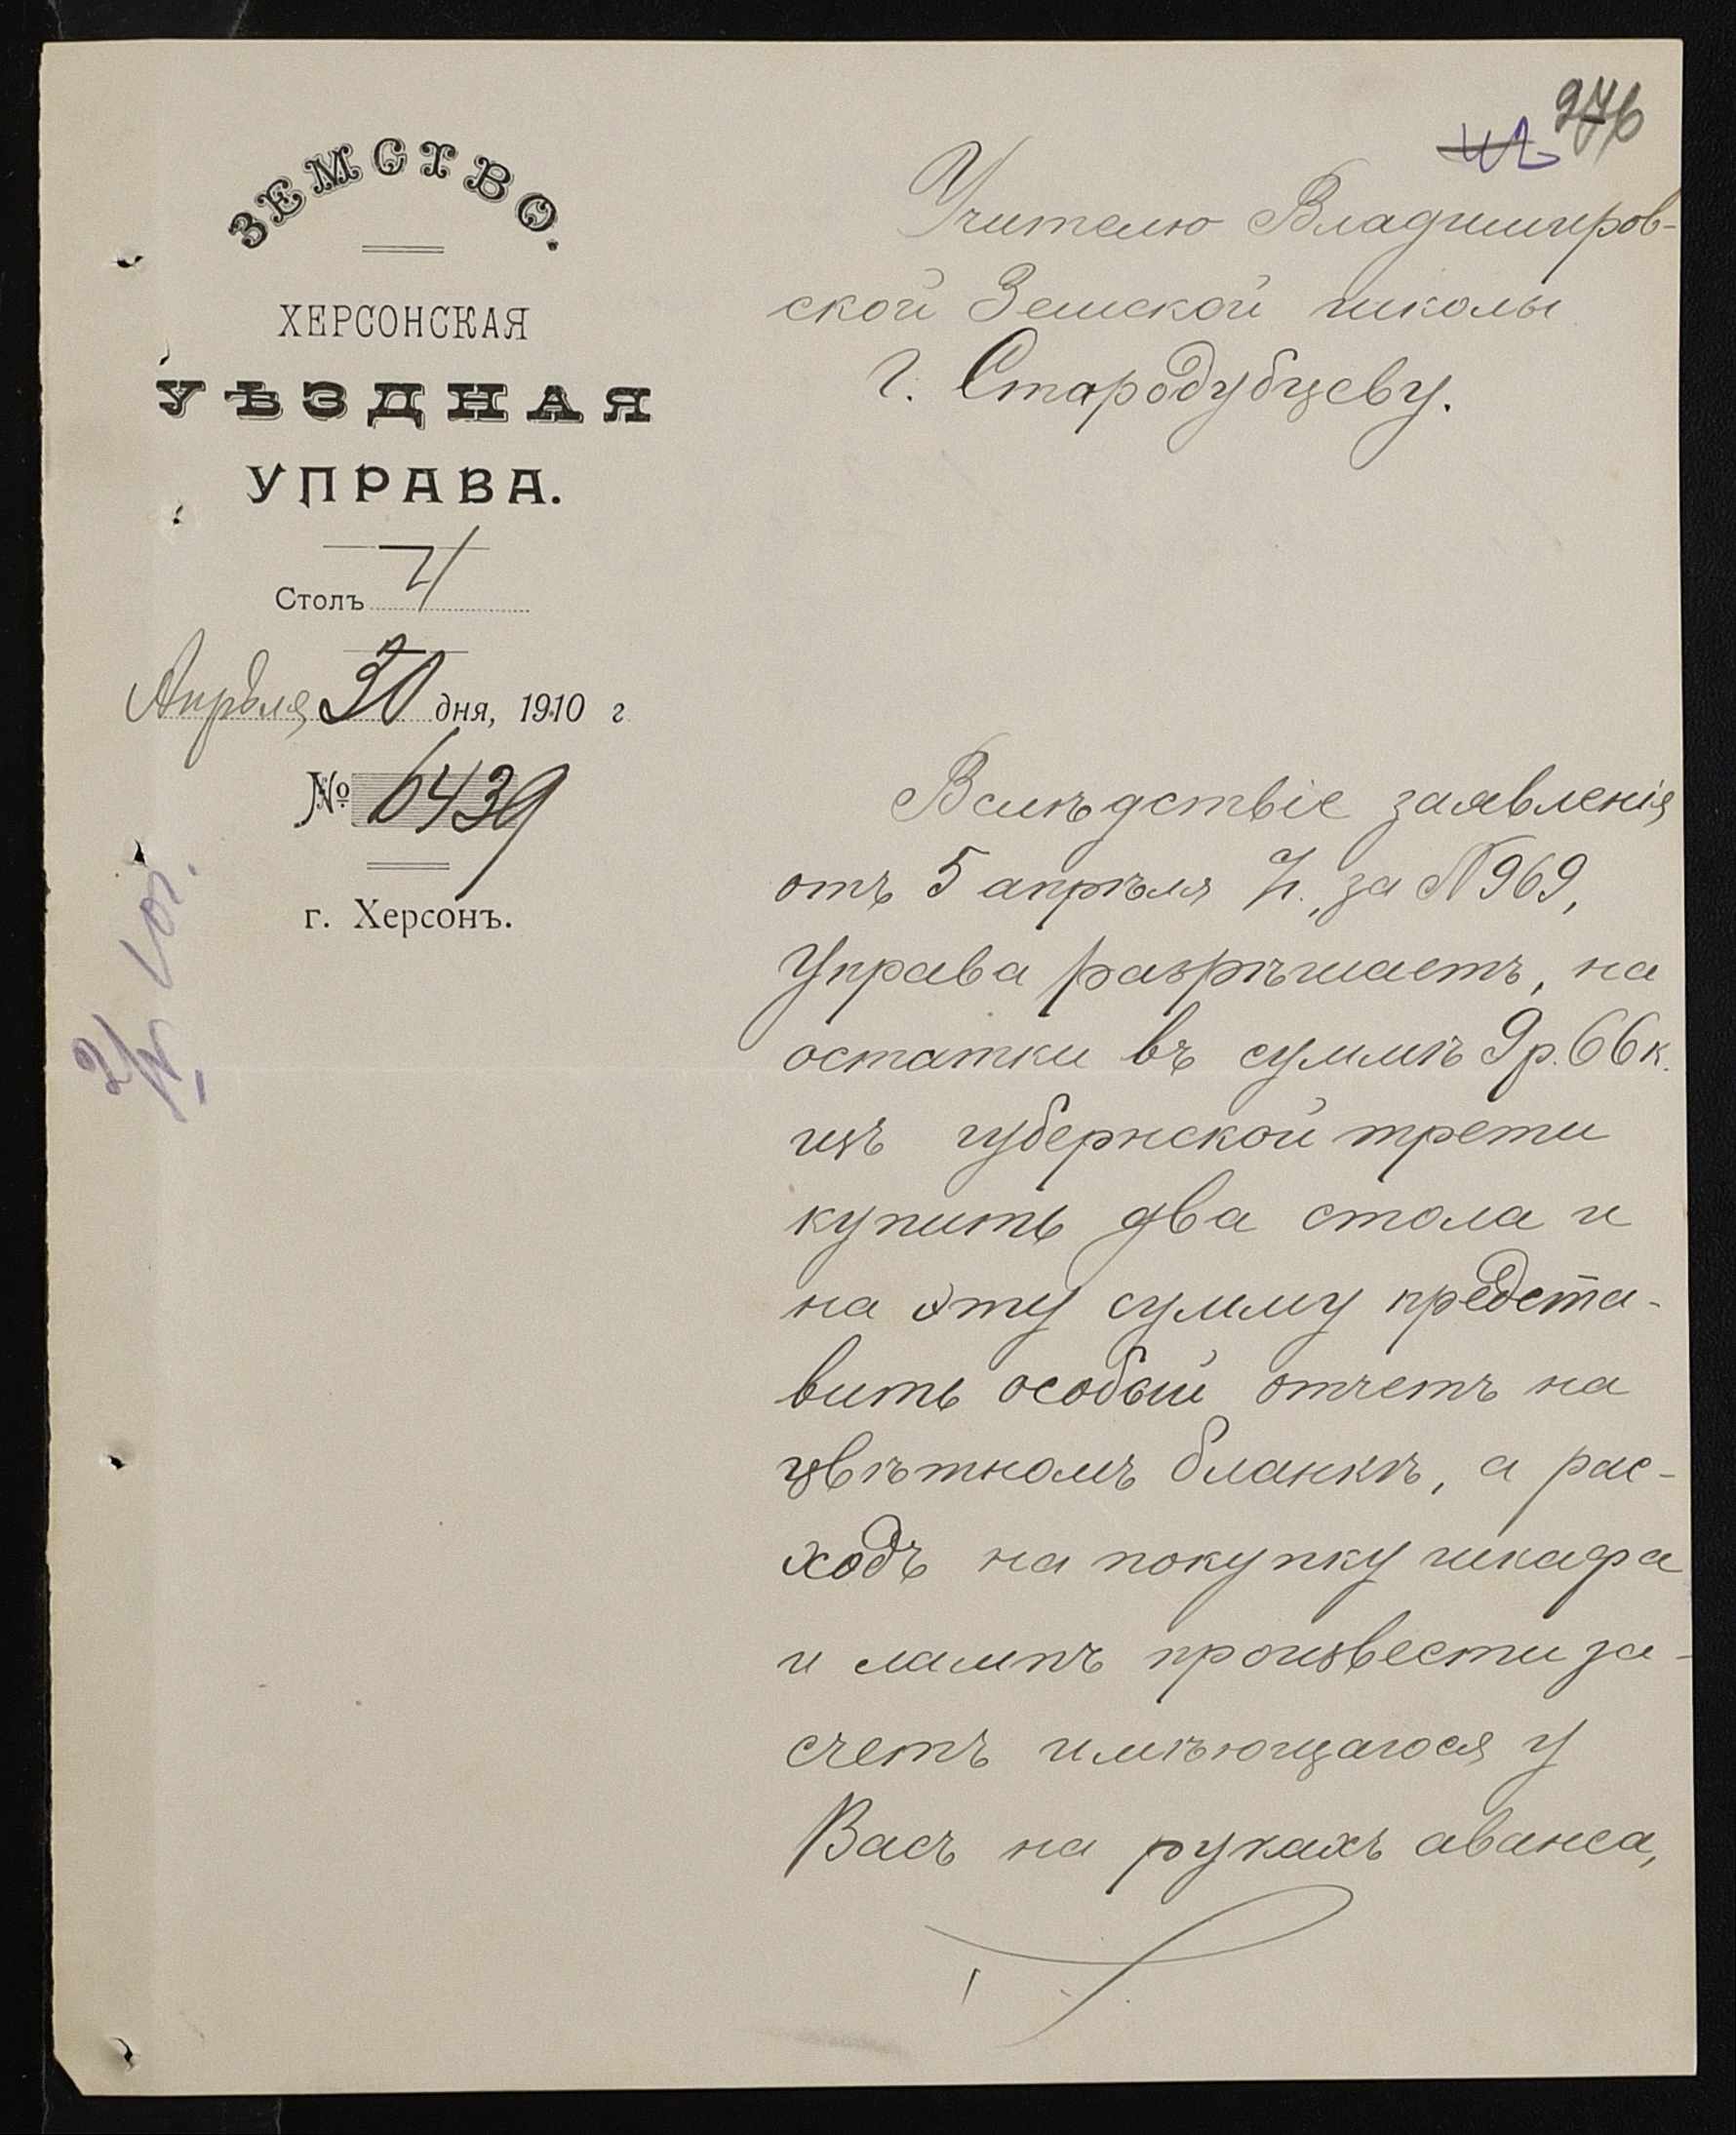 276
ЗЕМСТВО.
ХЕРСОНСКАЯ
УѢЗДНАЯ
УПРАВА.
Столъ
Апрѣля 30 дня, 1910 г
№ 6439
г. Херсонъ.
Учителю Владимиров-
ской Земской школы
г. Стародубцеву.
Вслѣдствіе заявленія
отъ 5 апрѣля за N 969,
Управа разрѣшаетъ, на
остатки въ суммѣ 9 р. 66 к.
изъ губернской трети
купить два стола и
на эту сумму предста-
вить особый отчетъ на
цвѣтномъ бланкѣ, а рас-
ходъ на покупку шкафа
и лампъ произвести за-
счетъ имѣющагося у
Васъ на рукахъ аванса,